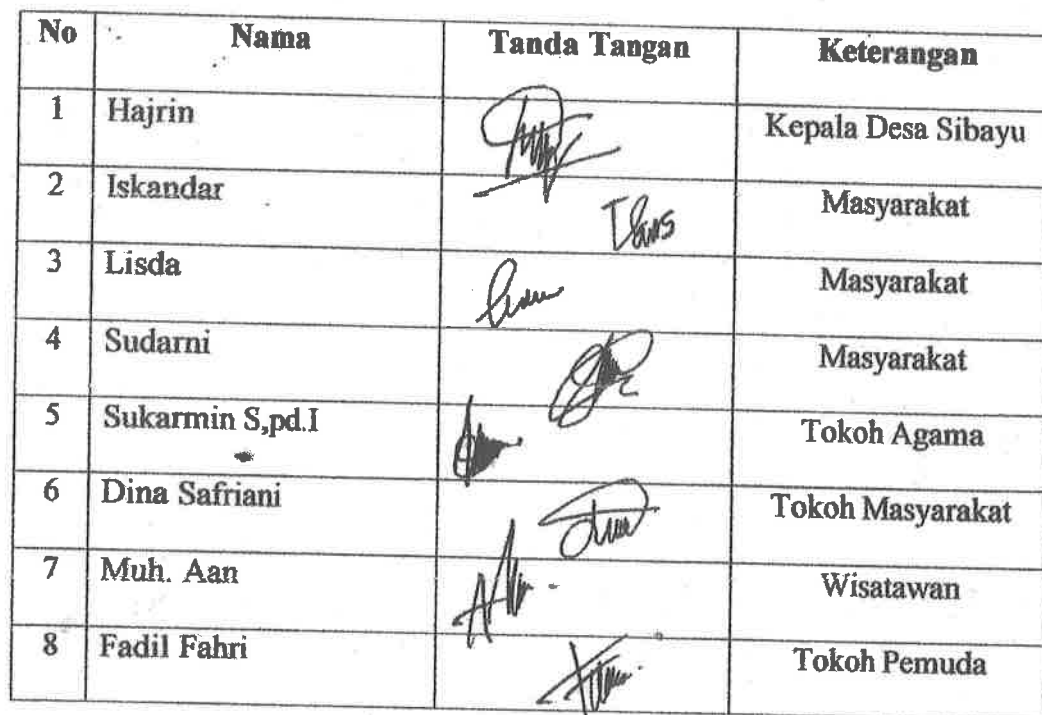 No Nama Tanda Tangan Keterangan
1 Hajrin Kepala Desa Sibayu
2 Iskandar Masyarakat
3 Lisda Masyarakat
4 Sudarni Masyarakat
5 Sukarmin S,pd.I Tokoh Agama
6 Dina Safriani Tokoh Masyarakat
7 Muh. Aan Wisatawan
8 Fadil Fahri Tokoh Pemuda